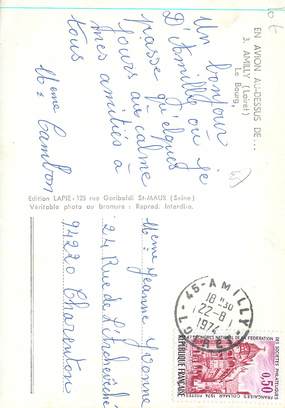 EN AVION AU-DESSUS DE...
3. AMILLY (Loiret)
Le Bourg.
Un bonjour
D'Amilly où je
passe quelques
jours au calme
mes amitiés à
tous
Mme Cambon
Edition LAPIE - 125 rue Garibaldi St-MAUR (Seine)
Véritable photo au bromure - Reprod. Interdite.
Mme Jeanne Yvonne
24 Rue de l'Archevêché
94220 Charenton
45 - AMILLY
18H30
22-8
1974
LOIRET
CONGRES NATIONAL DE LA FEDERATION
DES SOCIETES PHILATELIQUES
FRANCAISES COLMAR 1974
0,50
REPUBLIQUE FRANCAISE